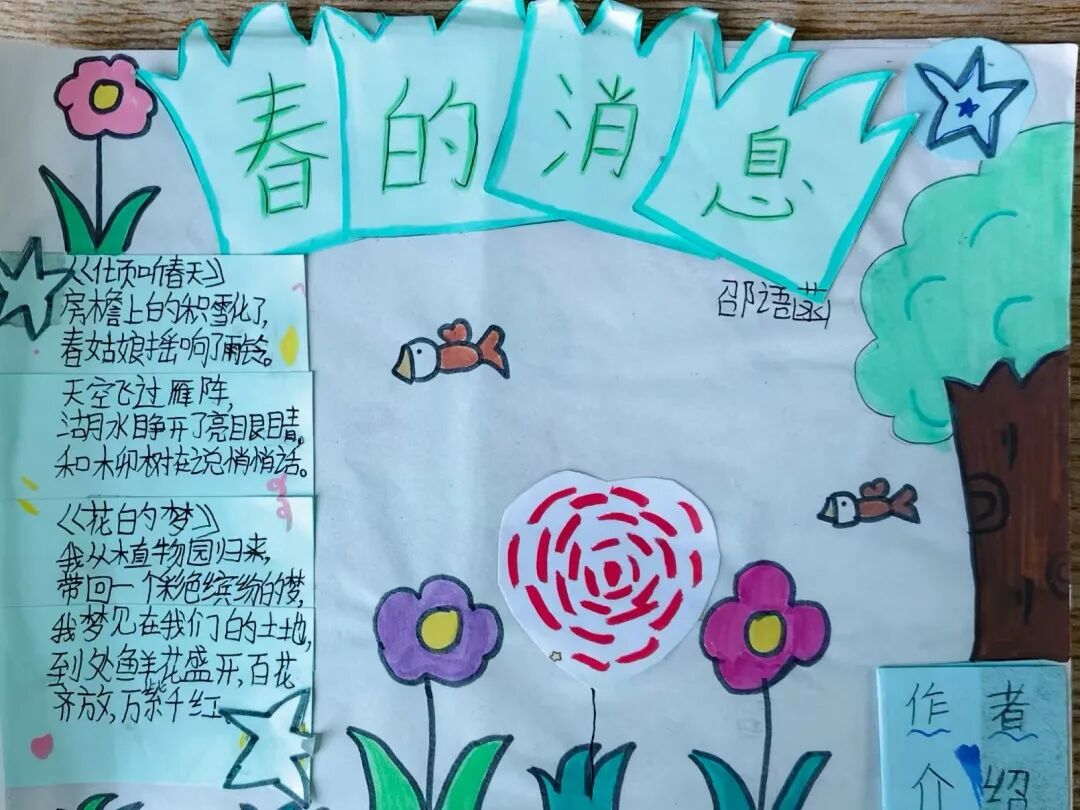 春的消息
邵语
《倾听春天》
房檐上的积雪化了,
春姑娘摇响了雨铃。
天空飞过雁阵,
湖水睁开了亮眼睛。
和柳树在说悄悄话。
《花的梦》
我从植物园归来,
带回一个彩色缤纷的梦,
我梦见在我们的土地,
到处鲜花盛开,百花
齐放,万紫千红
作煮
介绍